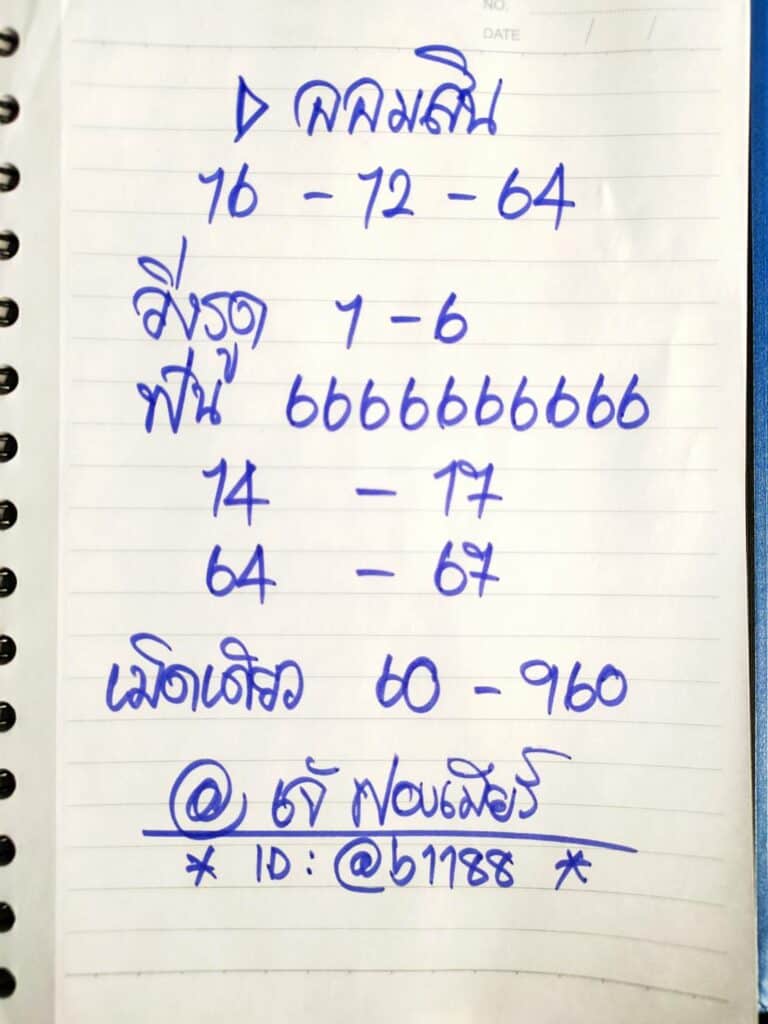 NO.
DATE / /
▷ ออมสิน
16 - 12 - 64
วิ่งรูด 1 - 6
ฟัน 6666666666
14 - 17
64 - 67
เม็ดเดียว 60 - 960
@ เจ๊ ฟองเบียร์
* ID : @b1188 *